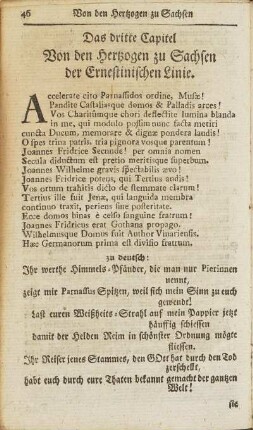 46 Von den Hertzogen zu Sachsen
Das dritte Capitel
Von den Hertzogen zu Sachsen
der Ernestinischen Linie.
Accelerate cito Parnassidos ordine, Musæ!
Pandite Castaliæque domos & Palladis arces!
Vos Charitumque chori deflectite lumina blanda
in me, qui modulo possim nunc facta metiri
cuncta Ducum, memorare & dignæ pondera laudis!
O spes trina patris, tria pignora vosque parentum!
Joannes Fridrice Secunde! per omnia nomen
Secula diductum est pretio meritisque superbum.
Joannes Wilhelme gravis spectabilis ævo!
Joannes Fridrice poteus, qui Tertius audis!
Vos ortum trahitis dicto de stemmate clarum!
Tertius ille fuit Jenæ, qui languida membra
continuo traxit, periens sine posteritate.
Ecce domos binas è celso sanguine fratrum!
Joannes Fridricus erat Gothana propago.
Wilhelmusque Domus fuit Author Vinariensis.
Hæc Germanorum prima est divisio fratrum.
zu deutsch:
Ihr werthe Himmels-Pfänder, die man nur Pierinnen
nennt,
zeigt mir Parnassus Spitzen, weil sich mein Sinn zu euch
gewendt!
last euren Weißheits-Strahl auf mein Pappier jetzt
häuffig schiessen
damit der Helden Reim in schönster Ordnung mögte
fliessen.
Ihr Reiser jenes Stammes, den GOtt hat durch den Tod
zerschellt,
habt euch durch eure Thaten bekannt gemacht der gantzen
Welt!